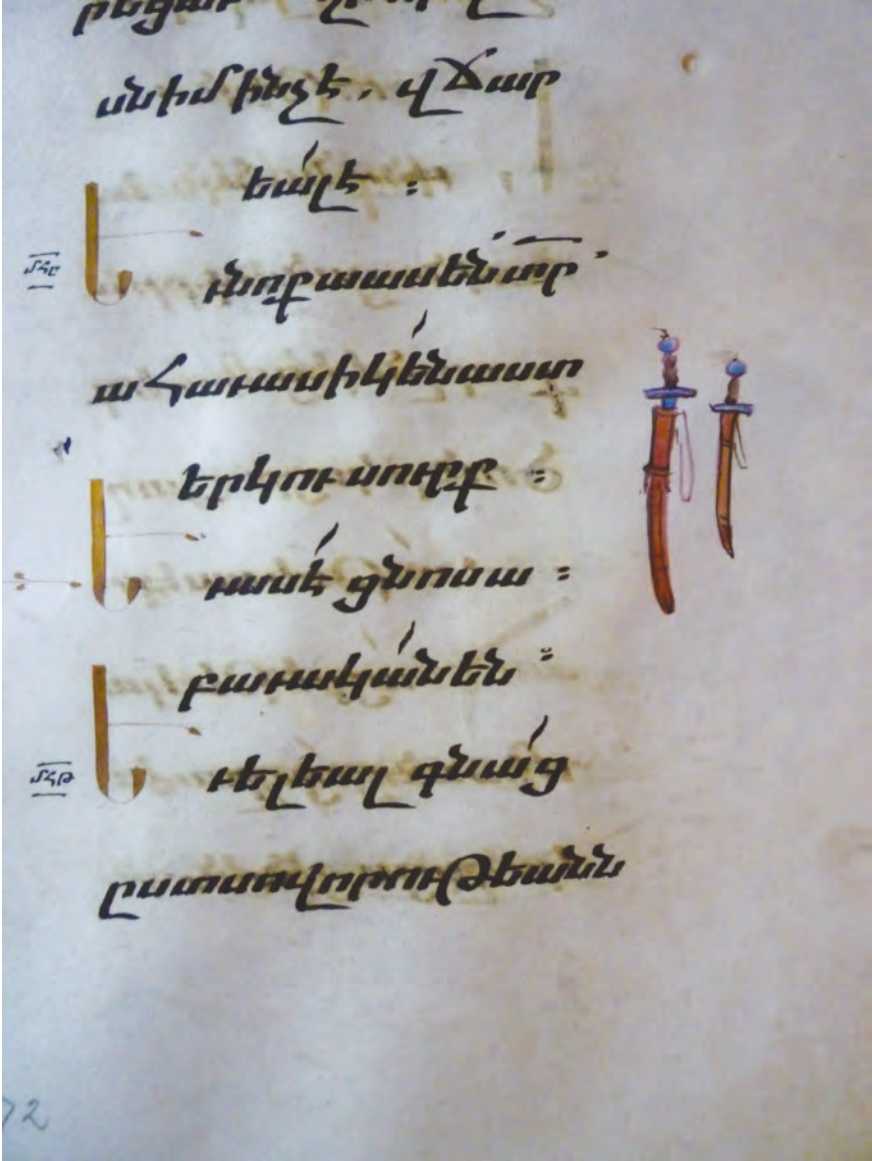 սն իմ ինչ է . վճար
եալ է :
մհը
Եւ նոքա ասեն տր ՝
ահաւասիկ են աստ
երկու սուրք :
Եւ ասէ ցնոսա :
Բաւական են :
մհթ
Եւ ելեալ գնաց
ըստ սովորութեանն
72